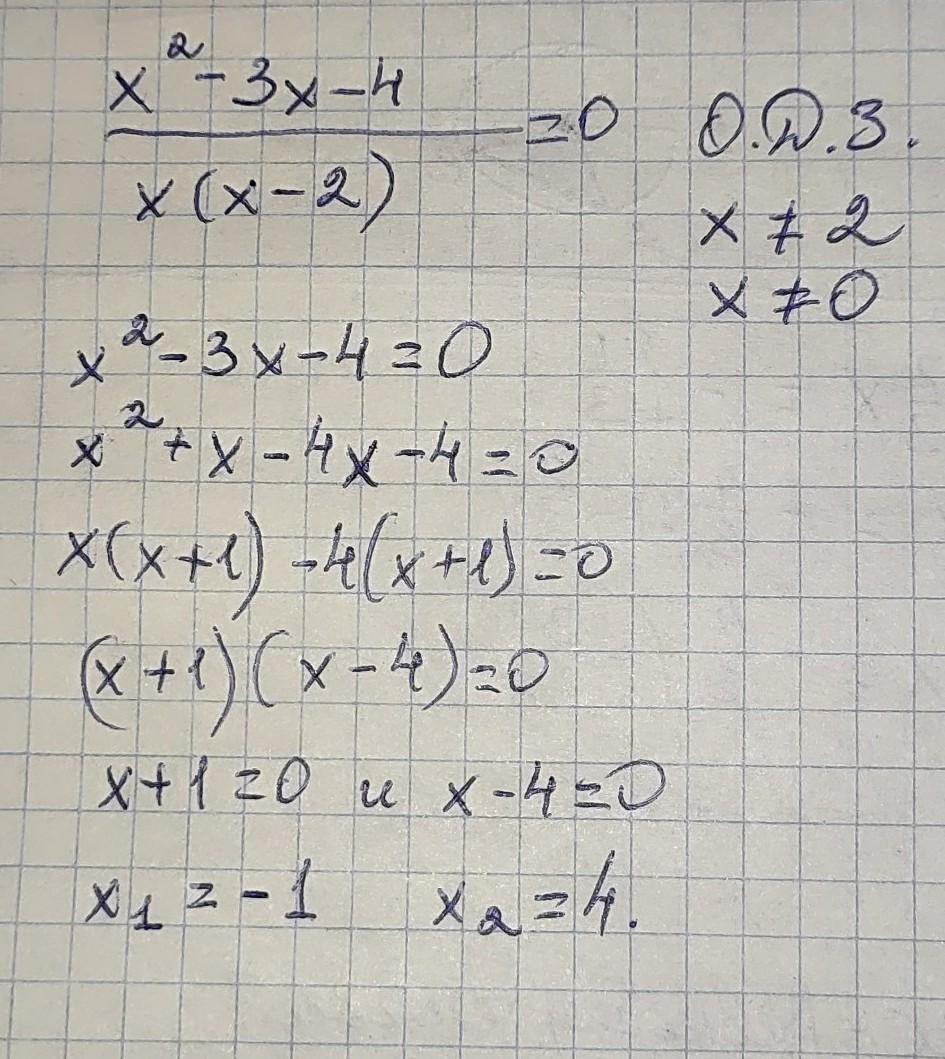 x² - 3x - 4
x(x - 2)
= 0
О.Д.З.
x ≠ 2
x ≠ 0
x² - 3x - 4 = 0
x² + x - 4x - 4 = 0
x(x + 1) - 4(x + 1) = 0
(x + 1)(x - 4) = 0
x + 1 = 0 и x - 4 = 0
x₁ = -1 x₂ = 4.